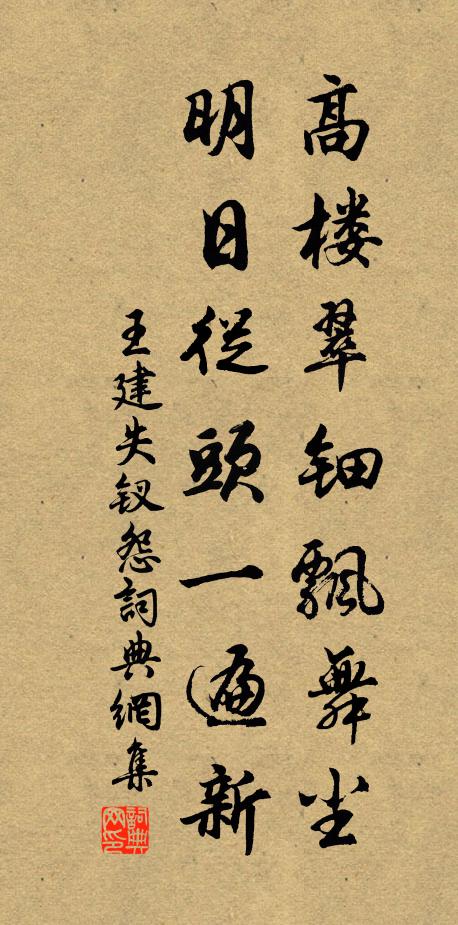 高楼翠钿飘舞尘
明日從頭一遍新
王建失钗怨詞典網集
詞典网印